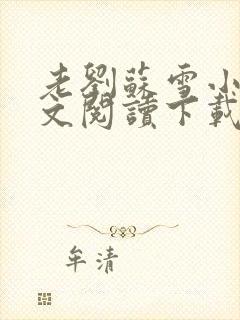 老劉蘇雪小
文閱讀下載
牟清